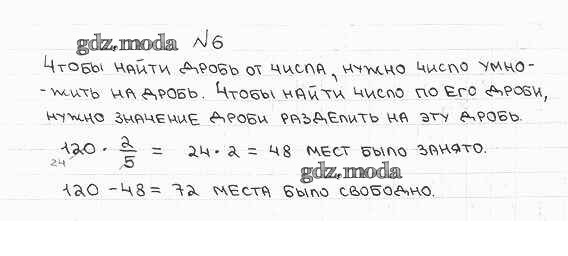 gdz.moda №6
Чтобы найти дробь от числа, нужно число умно-
-жить на дробь. Чтобы найти число по его дроби,
нужно значение дроби разделить на эту дробь.
120 · 2/5 = 24 · 2 = 48 мест было занято.
24
gdz.moda
120 - 48 = 72 места было свободно.